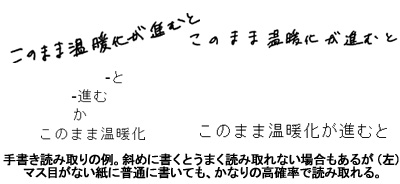 このまま温暖化が進むと
このまま温暖化が進むと
-と
-進む
か
このまま温暖化
このまま温暖化が進むと
手書き読み取りの例。斜めに書くとうまく読み取れない場合もあるが（左）
マス目がない紙に普通に書いても、かなりの高確率で読み取れる。